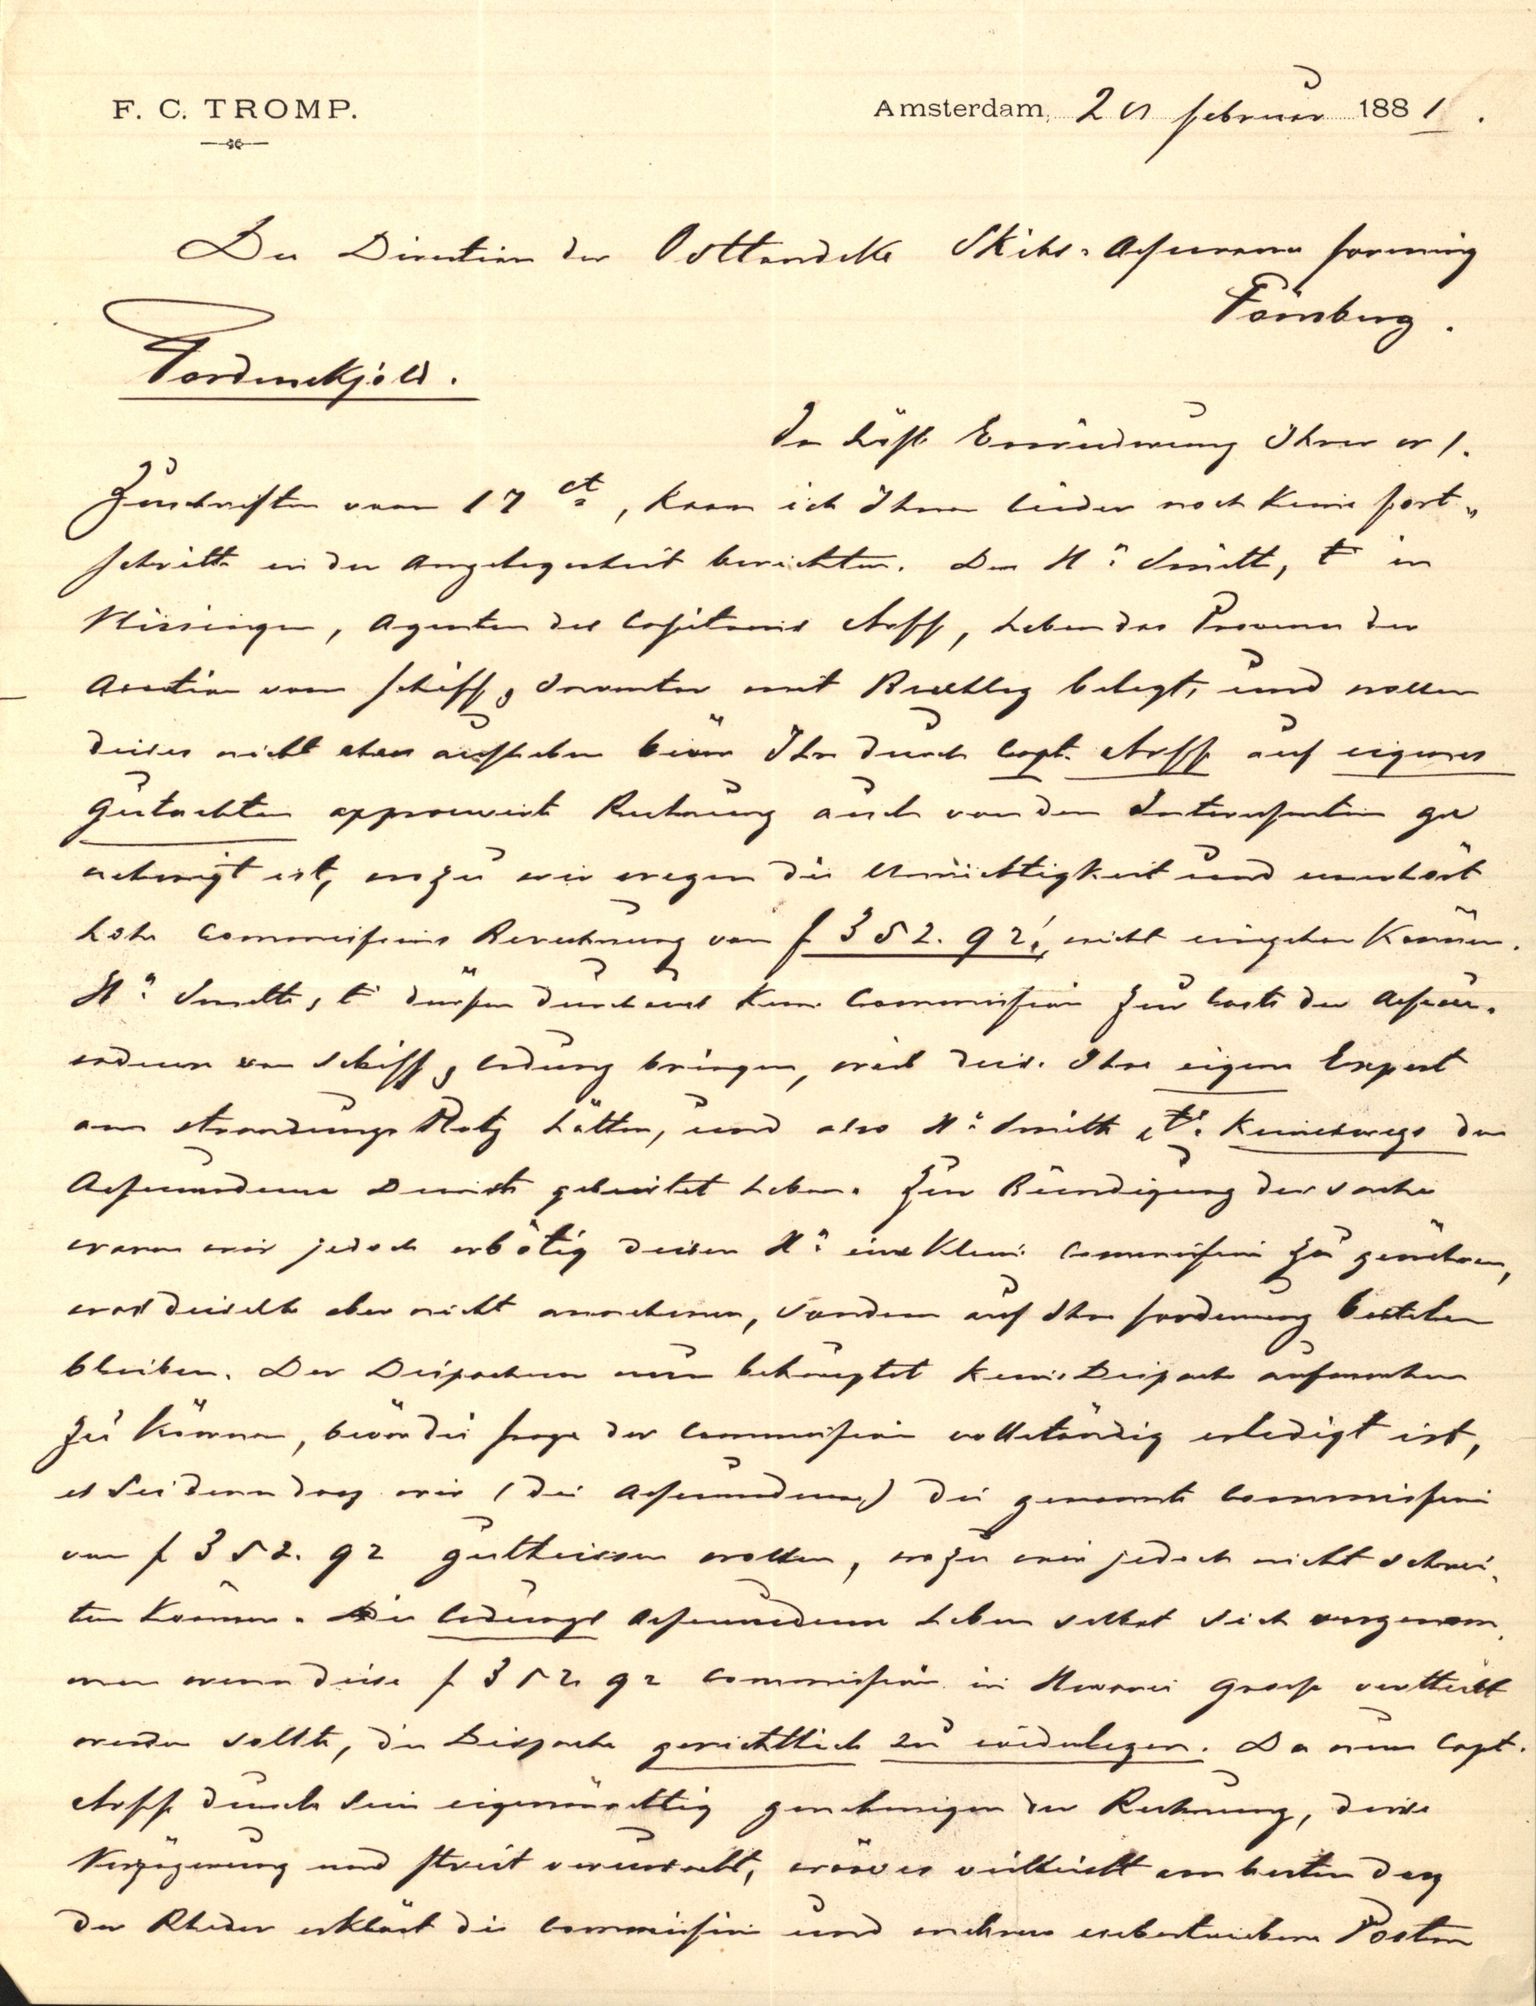 F. C. TROMP.
Amsterdam, 20 februar 1881.
Die Direction der Ostlandske Skibs-Assurance forening
Tönsberg.
Tordenskjold.
In höfl Erwiederung Ihrer er /.
Zuschriften vom 17 ct, kann ich Ihnen leider noch keine fort„
schritte in der Angelegenheit berichten. Den Hn. Smith, in
Vlissingen, Agenten des Capitains Arff, haben das Provenu der
Auction vom schiff & Inventar mit Beschlag belegt, und wollen
dieses nicht eher aufheben bevor Ihr durch Capt. Arff auf eigenes
gutachten approuvirte Rechnung auch von den Interessenten ge
nehmigt ist, wozu wir wegen die Unrichtigkeit und unerhört
hohe Commissions Berechnung von f 352.92, nicht eingehen können.
Hn. Smith, dürfen durchaus keine Commission zur Last der Assecu„
radeure von schiff & ladung bringen, weil diese Ihre eigene Expert
am strandungs Platz hätten, und also Hn. Smith keineswegs den
Assecuradeure Dienste geleistet haben. Zur Beendigung der sache
waren wir jedoch erbötig diesen Hn. eine kleine Commission zu gewähren,
was dieselbe aber nicht annehmen, sondern auf Ihre forderung bestehen
bleiben. Der Dispacheur nun behauptet keine Dispache aufmachen
zu können, bevor die frage der Commission vollständig erledigt ist,
es sei denn dass wir (die Assecuradeure) die genannte Commission
von f 352.92 gutheissen wollen, wozu wir jedoch nicht schrei„
ten können. Die ladungs Assecuradeure haben selbst sich vorgenom„
men wenn diese f 352.92 Commission in Havarei Grosse vertheilt
werden sollte, die Dispache gerichtlich zu widerlegen. Da nun Capt.
Arff durch sein eigenmächtig genehmigen der Rechnung, diese
Verzögerung und streit verursacht, wäre es vielleicht am besten dass
der Rheder erklärt die Commission und mehrere uebertriebene Posten